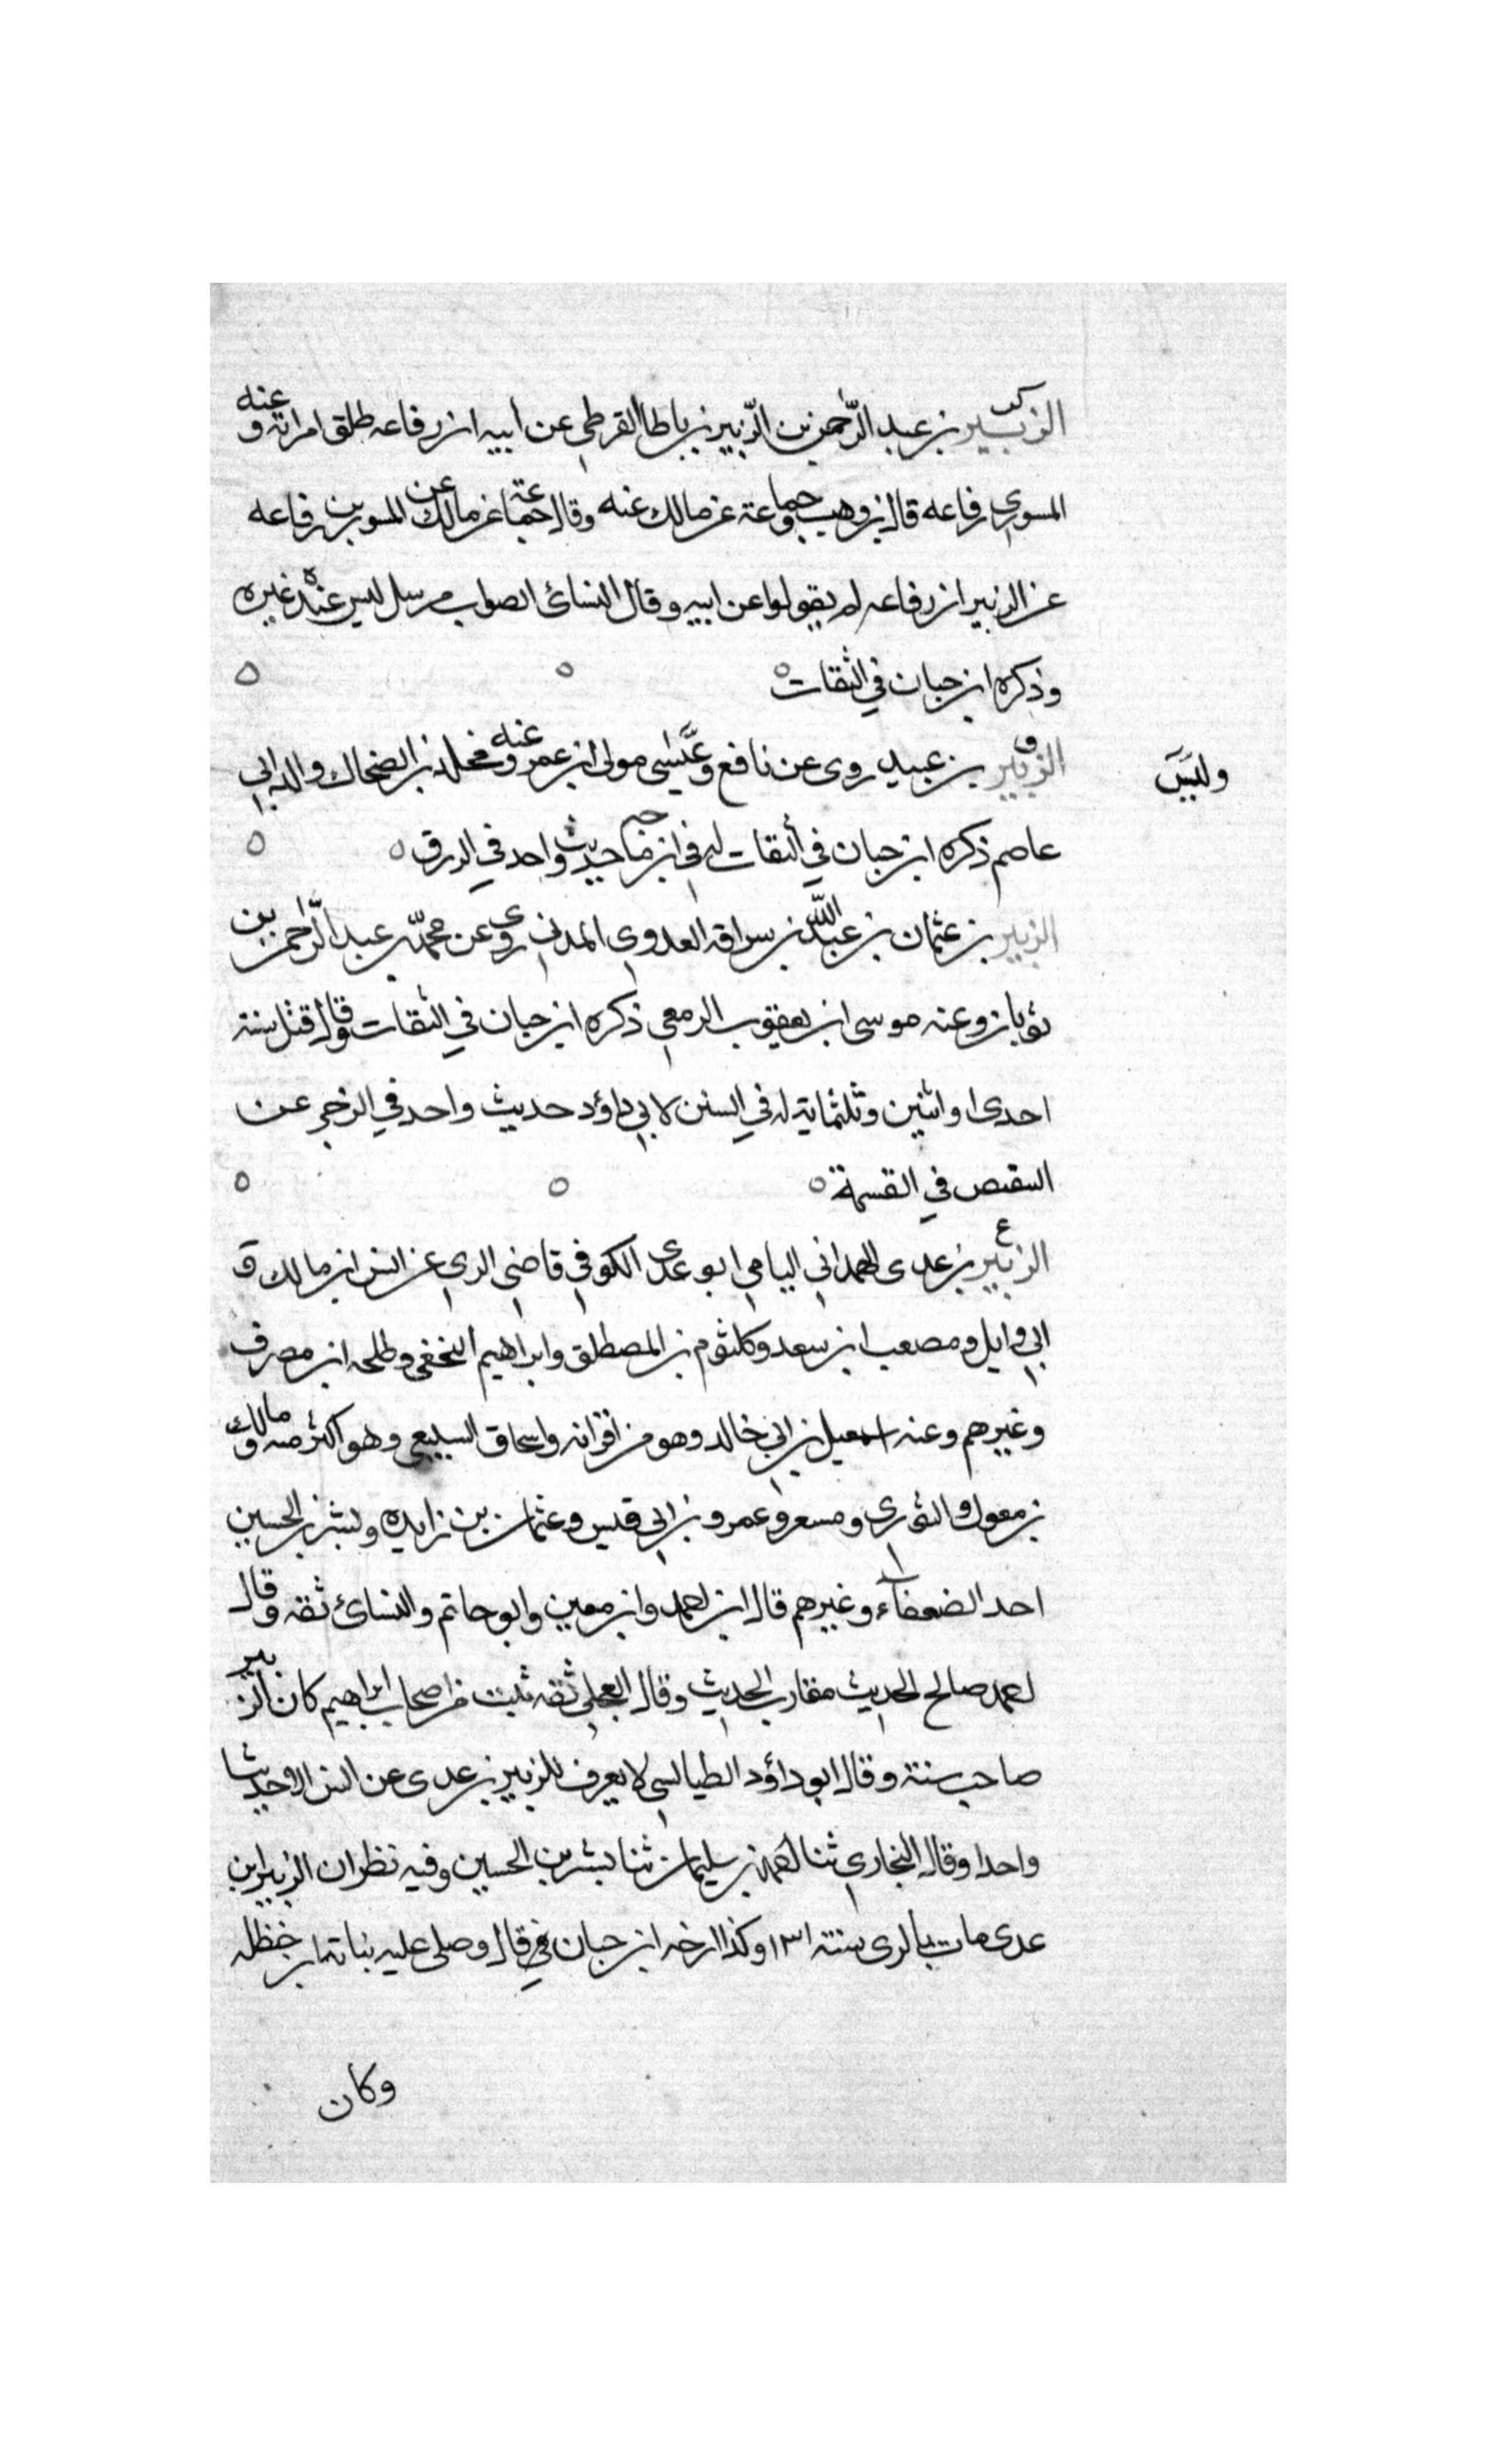 الزبير بن عبد الرحمن بن الزبير بن باطا القرظي عن ابيه ان رفاعه طلق امراته وعنه
المسور بن رفاعه قال ابن وهب وجماعة عن مالك عنه وقال جماعة عن مالك عن المسور بن رفاعه
عن الزبير ان رفاعه لم يقولوا عن ابيه وقال النسائ الصواب مرسل ليس عنده غيره
وذكره ابن حبان في الثقات
الزبير بن عبيد روى عن نافع وعيسى مولى ابن عمر وعنه مخلد بن الضحاك والد ابي
عاصم ذكره ابن حبان في الثقات له في ابن ماجه حديث واحد في الرزق
الزبير بن عثمان بن عبد الله بن سراقه العدوي المدني روى عن محمد بن عبد الرحمن بن
ثوبان وعنه موسى ابن يعقوب الزمعي ذكره ابن حبان في الثقات وقال قتل سنة
احدى او اثنين وثلثماية له في السنن لابي داؤد حديث واحد في الزجر عن
التقنص في القسمة
الزبير بن عدى الهمداني اليامي ابو عدى الكوفي قاضي الري عن انس ابن مالك و
ابي وايل ومصعب ابن سعد وكلثوم بن المصطلق وابراهيم النخعي وطلحه ابن مصرف
وغيرهم وعنه اسمعيل بن ابي خالد وهو من اقرانه واسحاق السبيعي وهو اكثر منه ومالك
بن مغول والثوري ومسعر وعمرو بن ابي قيس وعثمان بن زايده وبشر بن الحسين
احد الضعفاء وغيرهم قال ابن احمد وابن معين وابو حاتم والنسائ ثقه وقال
احمد صالح الحديث مقارب الحديث وقال العجلي ثقه ثبت من اصحاب ابراهيم كان الزبير
صاحب سنة وقال ابو داؤد الطيالسي لا يعرف للزبير بن عدى عن انس الا حديثا
واحدا وقال البخاري ثنا احمد بن سليمان ثنا بشر بن الحسين وفيه نظر ان الزبير ابن
عدى مات بالرى سنة ١٣١ وكذا ارخه ابن حبان في قال وصلى عليه نباته ابن حنظله
وكان